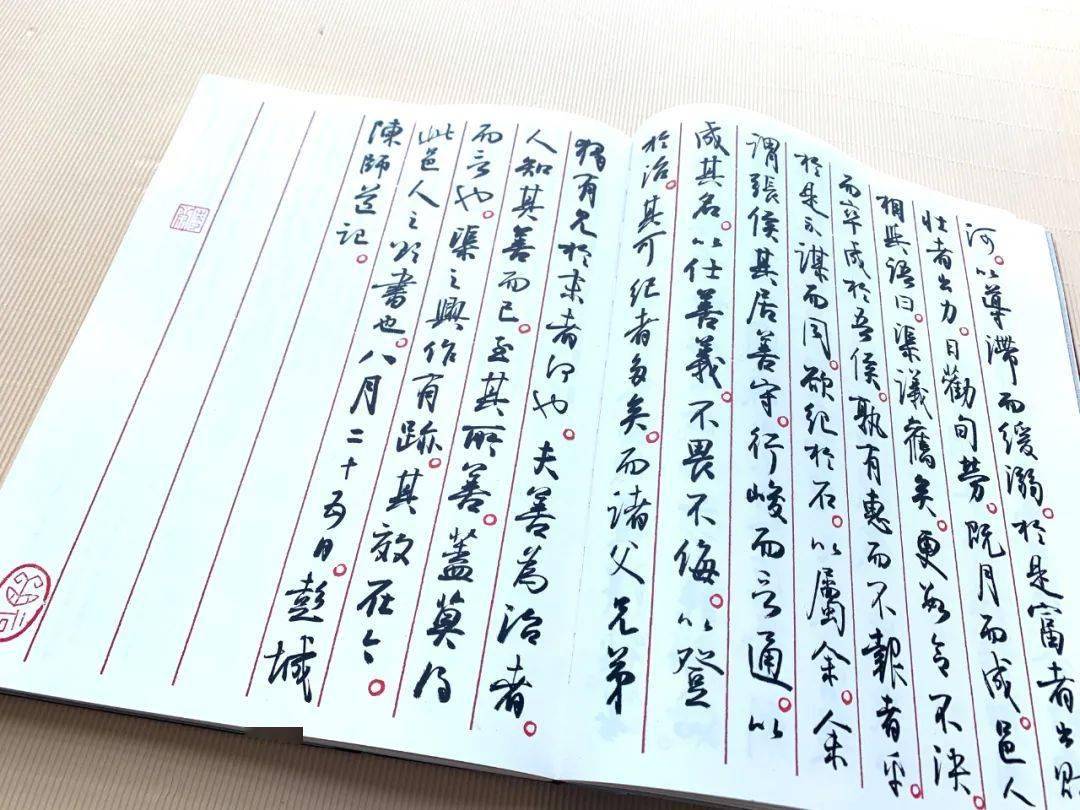 河。以導滯而緩溺。於是富者出財
壯者出力。日勸旬勞。既月而成。邑人
相與語曰。渠議舊矣。更數令不決。
而卒成於吾侯。孰有惠而不報者乎。
於是不謀而同。欲紀於石。以屬余。余
謂張侯其居善守。行峻而言通。以
成其名。以仕善義。不畏不侮。以登
於治。其可紀者多矣。而諸父兄弟
猶有見於末者何也。夫善為治者。
人知其善而已。至其所善。蓋莫得
而言也。渠之興作有跡。其效在今。
此邑人之所書也。八月二十五日。彭城
陳師道記。